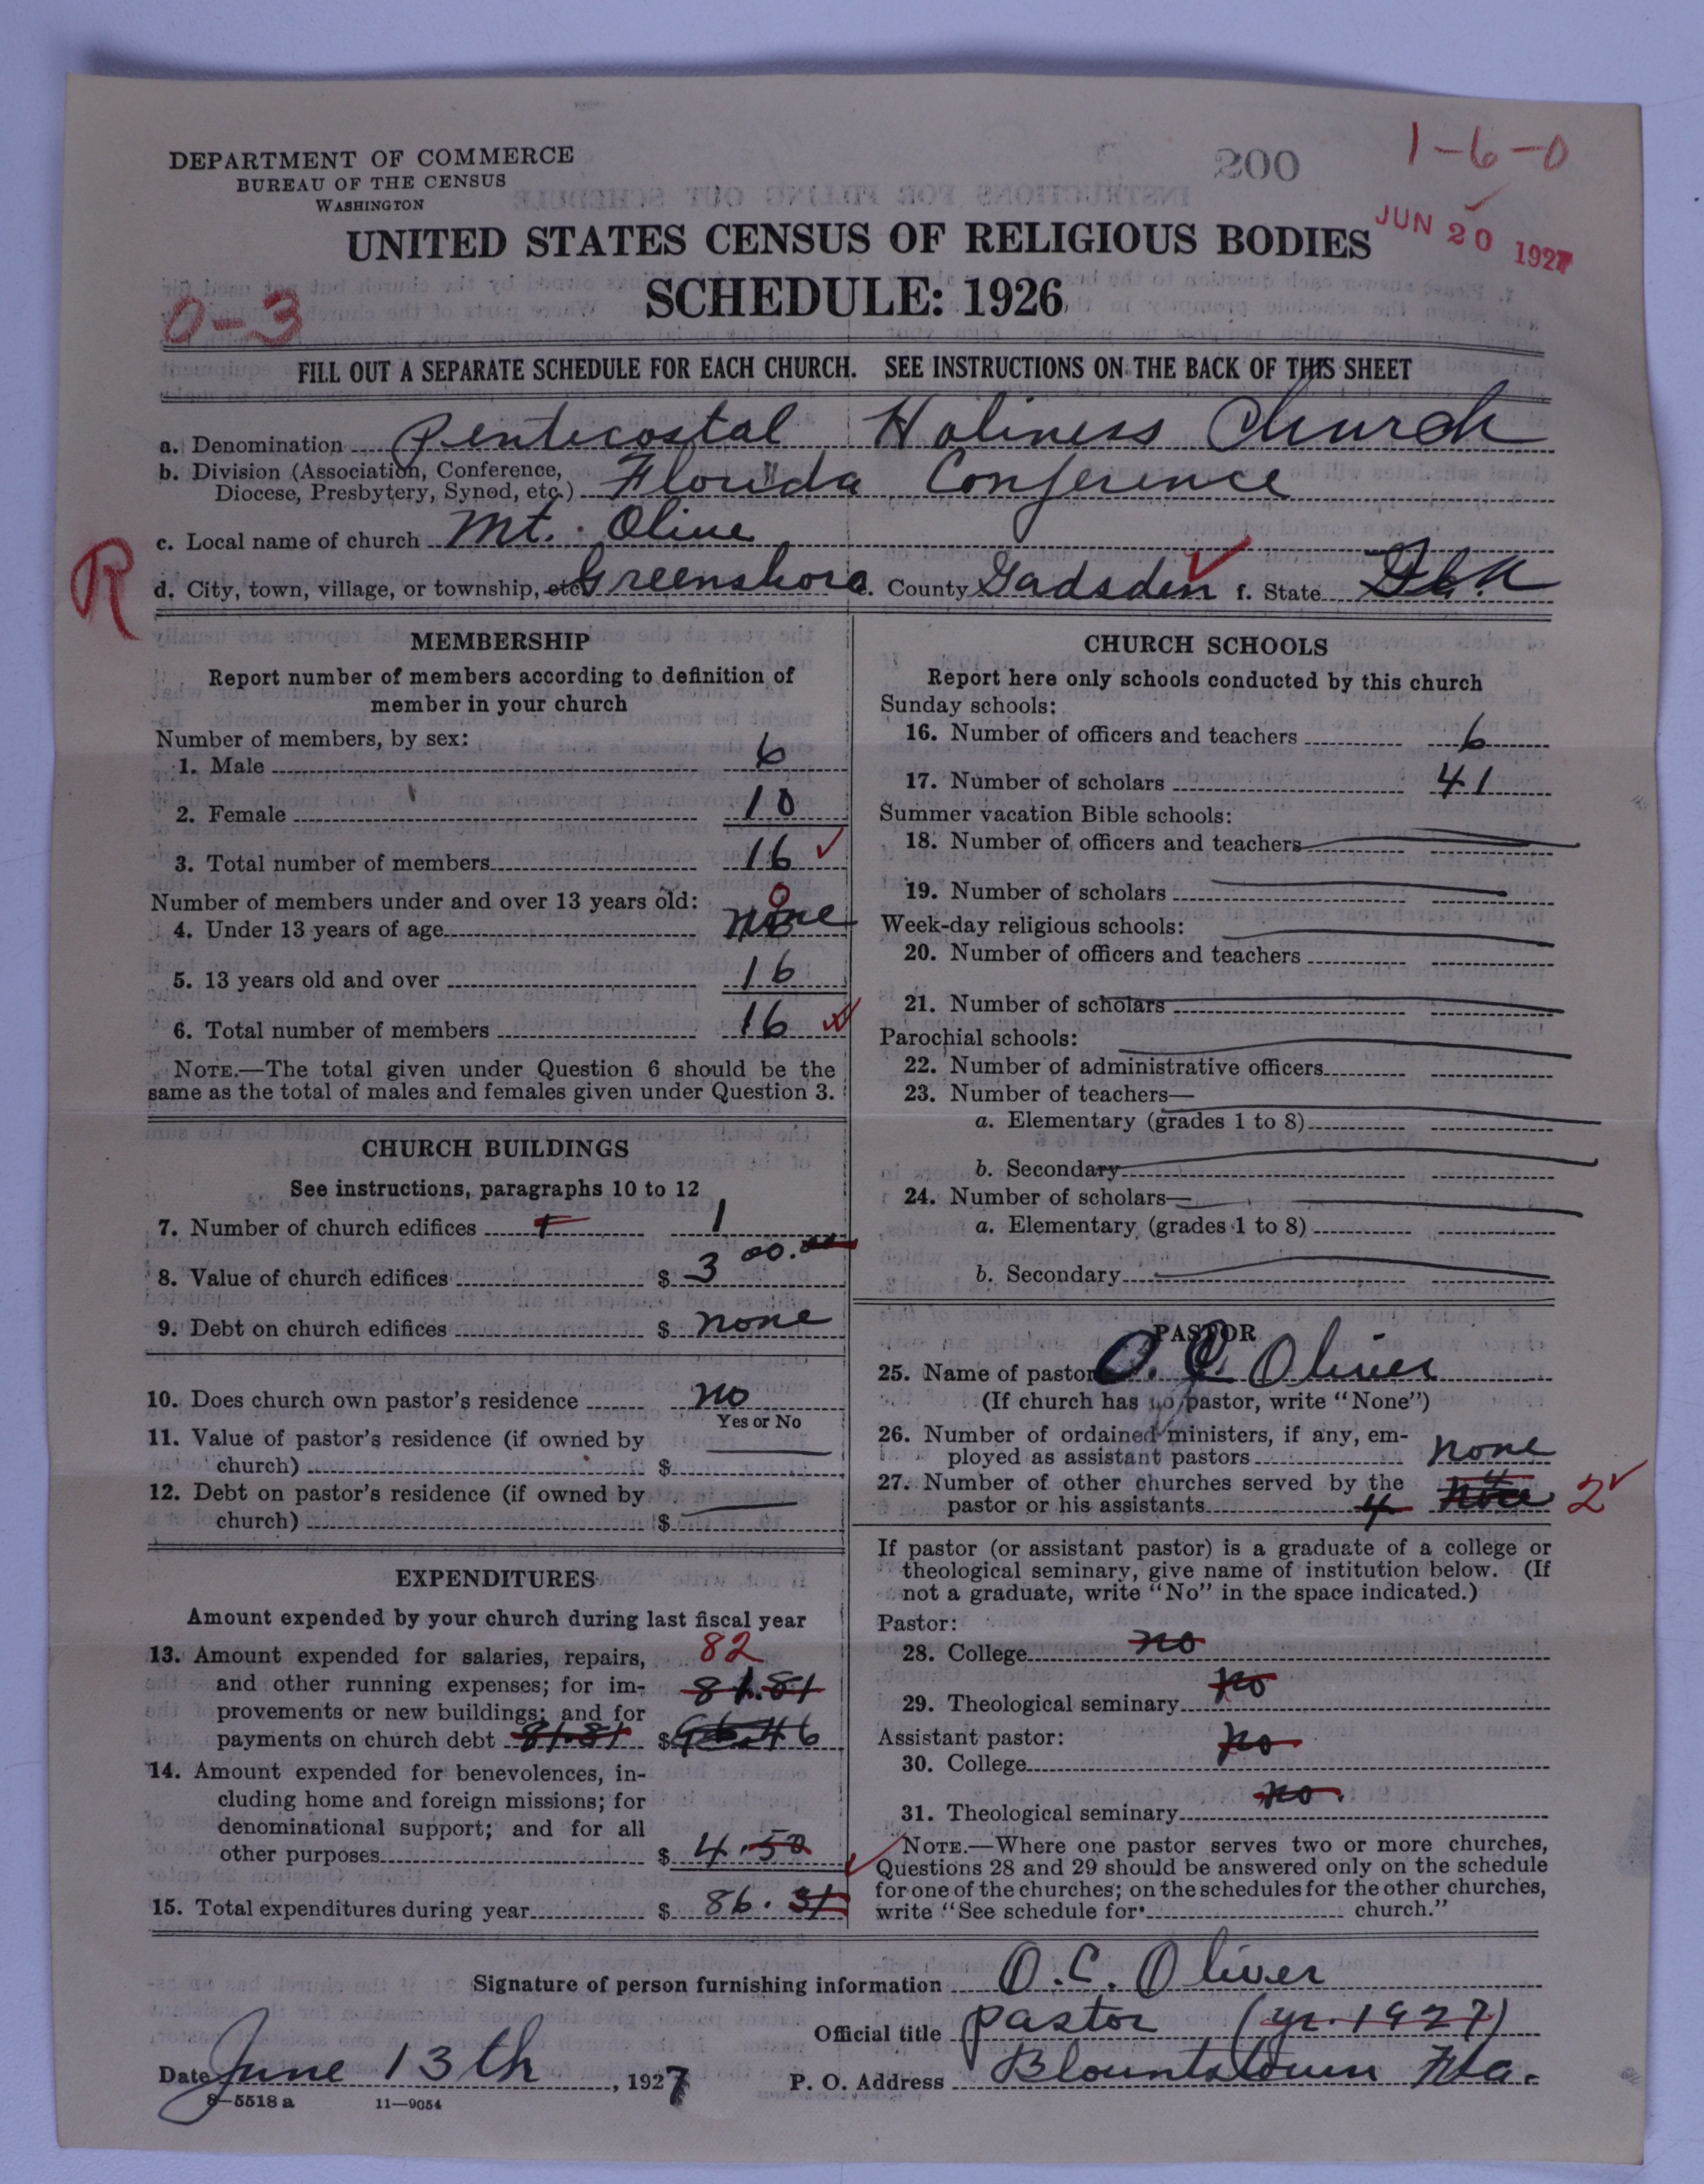 DEPARTMENT OF COMMERCE
BUREAU OF THE CENSUS
WASHINGTON
200
1-6-0
JUN 20 1927
UNITED STATES CENSUS OF RELIGIOUS BODIES
SCHEDULE: 1926
0-3
FILL OUT A SEPARATE SCHEDULE FOR EACH CHURCH. SEE INSTRUCTIONS ON THE BACK OF THIS SHEET
a. Denomination Pentecostal Holiness Church
b. Division (Association, Conference,
Diocese, Presbytery, Synod, etc.) Florida Conference
c. Local name of church Mt. Olive
R
d. City, town, village, or township, etc. Greensboro e. County Gadsden f. State Fla.
MEMBERSHIP
Report number of members according to definition of
member in your church
Number of members, by sex:
1. Male 6
2. Female 10
3. Total number of members 16
Number of members under and over 13 years old: 0
4. Under 13 years of age none
5. 13 years old and over 16
6. Total number of members 16
NOTE.—The total given under Question 6 should be the
same as the total of males and females given under Question 3.
CHURCH BUILDINGS
See instructions, paragraphs 10 to 12
7. Number of church edifices 1 1
8. Value of church edifices $ 300.00
9. Debt on church edifices $ none
10. Does church own pastor's residence no
Yes or No
11. Value of pastor's residence (if owned by
church) $
12. Debt on pastor's residence (if owned by
church) $
EXPENDITURES
Amount expended by your church during last fiscal year
13. Amount expended for salaries, repairs, 82
and other running expenses; for im- 81.81
provements or new buildings; and for
payments on church debt 81.81 $
14. Amount expended for benevolences, in-
cluding home and foreign missions; for
denominational support; and for all
other purposes $ 4.50
15. Total expenditures during year $ 86.31
CHURCH SCHOOLS
Report here only schools conducted by this church
Sunday schools:
16. Number of officers and teachers 6
17. Number of scholars 41
Summer vacation Bible schools:
18. Number of officers and teachers
19. Number of scholars
Week-day religious schools:
20. Number of officers and teachers
21. Number of scholars
Parochial schools:
22. Number of administrative officers
23. Number of teachers—
a. Elementary (grades 1 to 8)
b. Secondary
24. Number of scholars—
a. Elementary (grades 1 to 8)
b. Secondary
PASTOR
25. Name of pastor O. C. Oliver
(If church has no pastor, write "None")
26. Number of ordained ministers, if any, em-
ployed as assistant pastors none
27. Number of other churches served by the
pastor or his assistants 4 none 2
If pastor (or assistant pastor) is a graduate of a college or
theological seminary, give name of institution below. (If
not a graduate, write "No" in the space indicated.)
Pastor:
28. College no
29. Theological seminary no
Assistant pastor:
30. College no
31. Theological seminary no.
NOTE.—Where one pastor serves two or more churches,
Questions 28 and 29 should be answered only on the schedule
for one of the churches; on the schedules for the other churches,
write "See schedule for church."
Signature of person furnishing information O. C. Oliver
Official title pastor (yr. 1927)
Date June 13th, 1927 P. O. Address Blountstown Fla.
8—5518 a 11—9054